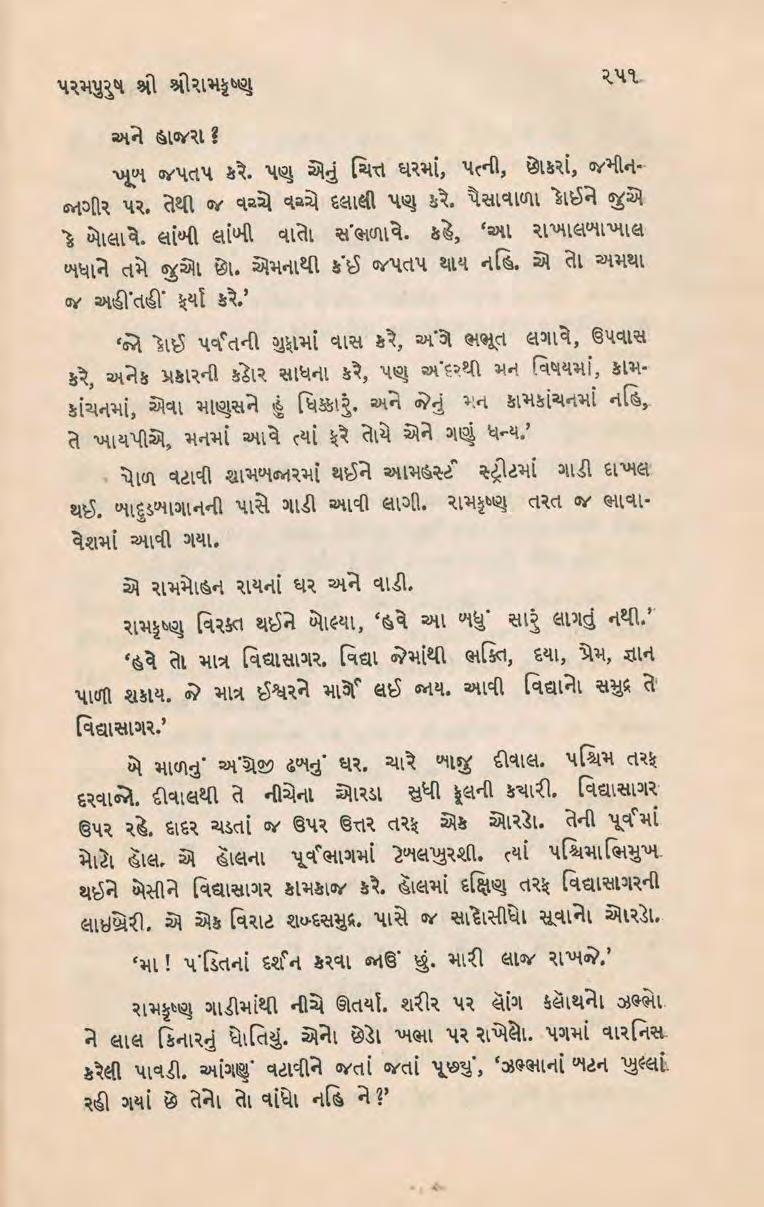 પરમપુરુષ શ્રી શ્રીરામકૃષ્ણ
૨૫૧
અને હાજરા ?
ખૂબ જપતપ કરે. પણ એનું ચિત્ત ઘરમાં, પત્ની, છોકરાં, જમીન-
જાગીર પર. તેથી જ વચ્ચે વચ્ચે દલાલી પણ કરે. પૈસાવાળા કોઈને જુએ
કે બોલાવે. લાંબી લાંબી વાતો સંભળાવે. કહે, ‘આ રાખાલબાખાલ
બધાને તમે જુઓ છો. એમનાથી કંઈ જપતપ થાય નહિ. એ તો અમથા
જ અહીંતહીં ફર્યા કરે.’
‘જો કોઈ પર્વતની ગુફામાં વાસ કરે, અંગે ભભૂત લગાવે, ઉપવાસ
કરે, અનેક પ્રકારની કઠોર સાધના કરે, પણ અંદરથી મન વિષયમાં, કામ-
કાંચનમાં, એવા માણસને હું ધિક્કારું. અને જેનું મન કામકાંચનમાં નહિ,
તે ખાયપીએ, મનમાં આવે ત્યાં ફરે તોયે એને ગણું ધન્ય.’
પોળ વટાવી શ્યામબજારમાં થઈને આમહર્સ્ટ સ્ટ્રીટમાં ગાડી દાખલ
થઈ. બાદુડબાગાનની પાસે ગાડી આવી લાગી. રામકૃષ્ણ તરત જ ભાવા-
વેશમાં આવી ગયા.
એ રામમોહન રાયનાં ઘર અને વાડી.
રામકૃષ્ણ વિરક્ત થઈને બોલ્યા, ‘હવે આ બધું સારું લાગતું નથી.’
‘હવે તો માત્ર વિદ્યાસાગર. વિદ્યા જેમાંથી ભક્તિ, દયા, પ્રેમ, જ્ઞાન
પાળી શકાય. જે માત્ર ઈશ્વરને માર્ગે લઈ જાય. આવી વિદ્યાનો સમુદ્ર તે
વિદ્યાસાગર.’
બે માળનું અંગ્રેજી ઢબનું ઘર. ચારે બાજુ દીવાલ. પશ્ચિમ તરફ
દરવાજો. દીવાલથી તે નીચેના ઓરડા સુધી ફૂલની કયારી. વિદ્યાસાગર
ઉપર રહે. દાદર ચડતાં જ ઉપર ઉત્તર તરફ એક ઓરડો. તેની પૂર્વમાં
મોટો હૉલ. એ હૉલના પૂર્વભાગમાં ટેબલખુરશી. ત્યાં પશ્ચિમાભિમુખ
થઈને બેસીને વિદ્યાસાગર કામકાજ કરે. હૉલમાં દક્ષિણ તરફ વિદ્યાસાગરની
લાઇબ્રેરી. એ એક વિરાટ શબ્દસમુદ્ર. પાસે જ સાદોસીધો સૂવાનો ઓરડો.
‘મા ! પંડિતનાં દર્શન કરવા જાઉં છું. મારી લાજ રાખજે.’
રામકૃષ્ણ ગાડીમાંથી નીચે ઊતર્યા. શરીર પર લૉંગ કલૉથનો ઝભ્ભો
ને લાલ કિનારનું ધોતિયું. એનો છેડો ખભા પર રાખેલો. પગમાં વારનિસ
કરેલી પાવડી. આંગણું વટાવીને જતાં જતાં પૂછયું, ‘ઝભ્ભાનાં બટન ખુલ્લાં
રહી ગયાં છે તેનો તો વાંધો નહિ ને ?’